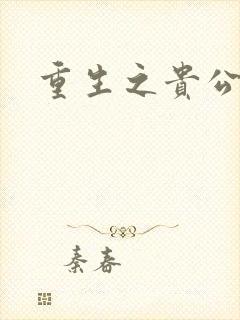 重生之貴公
秦春